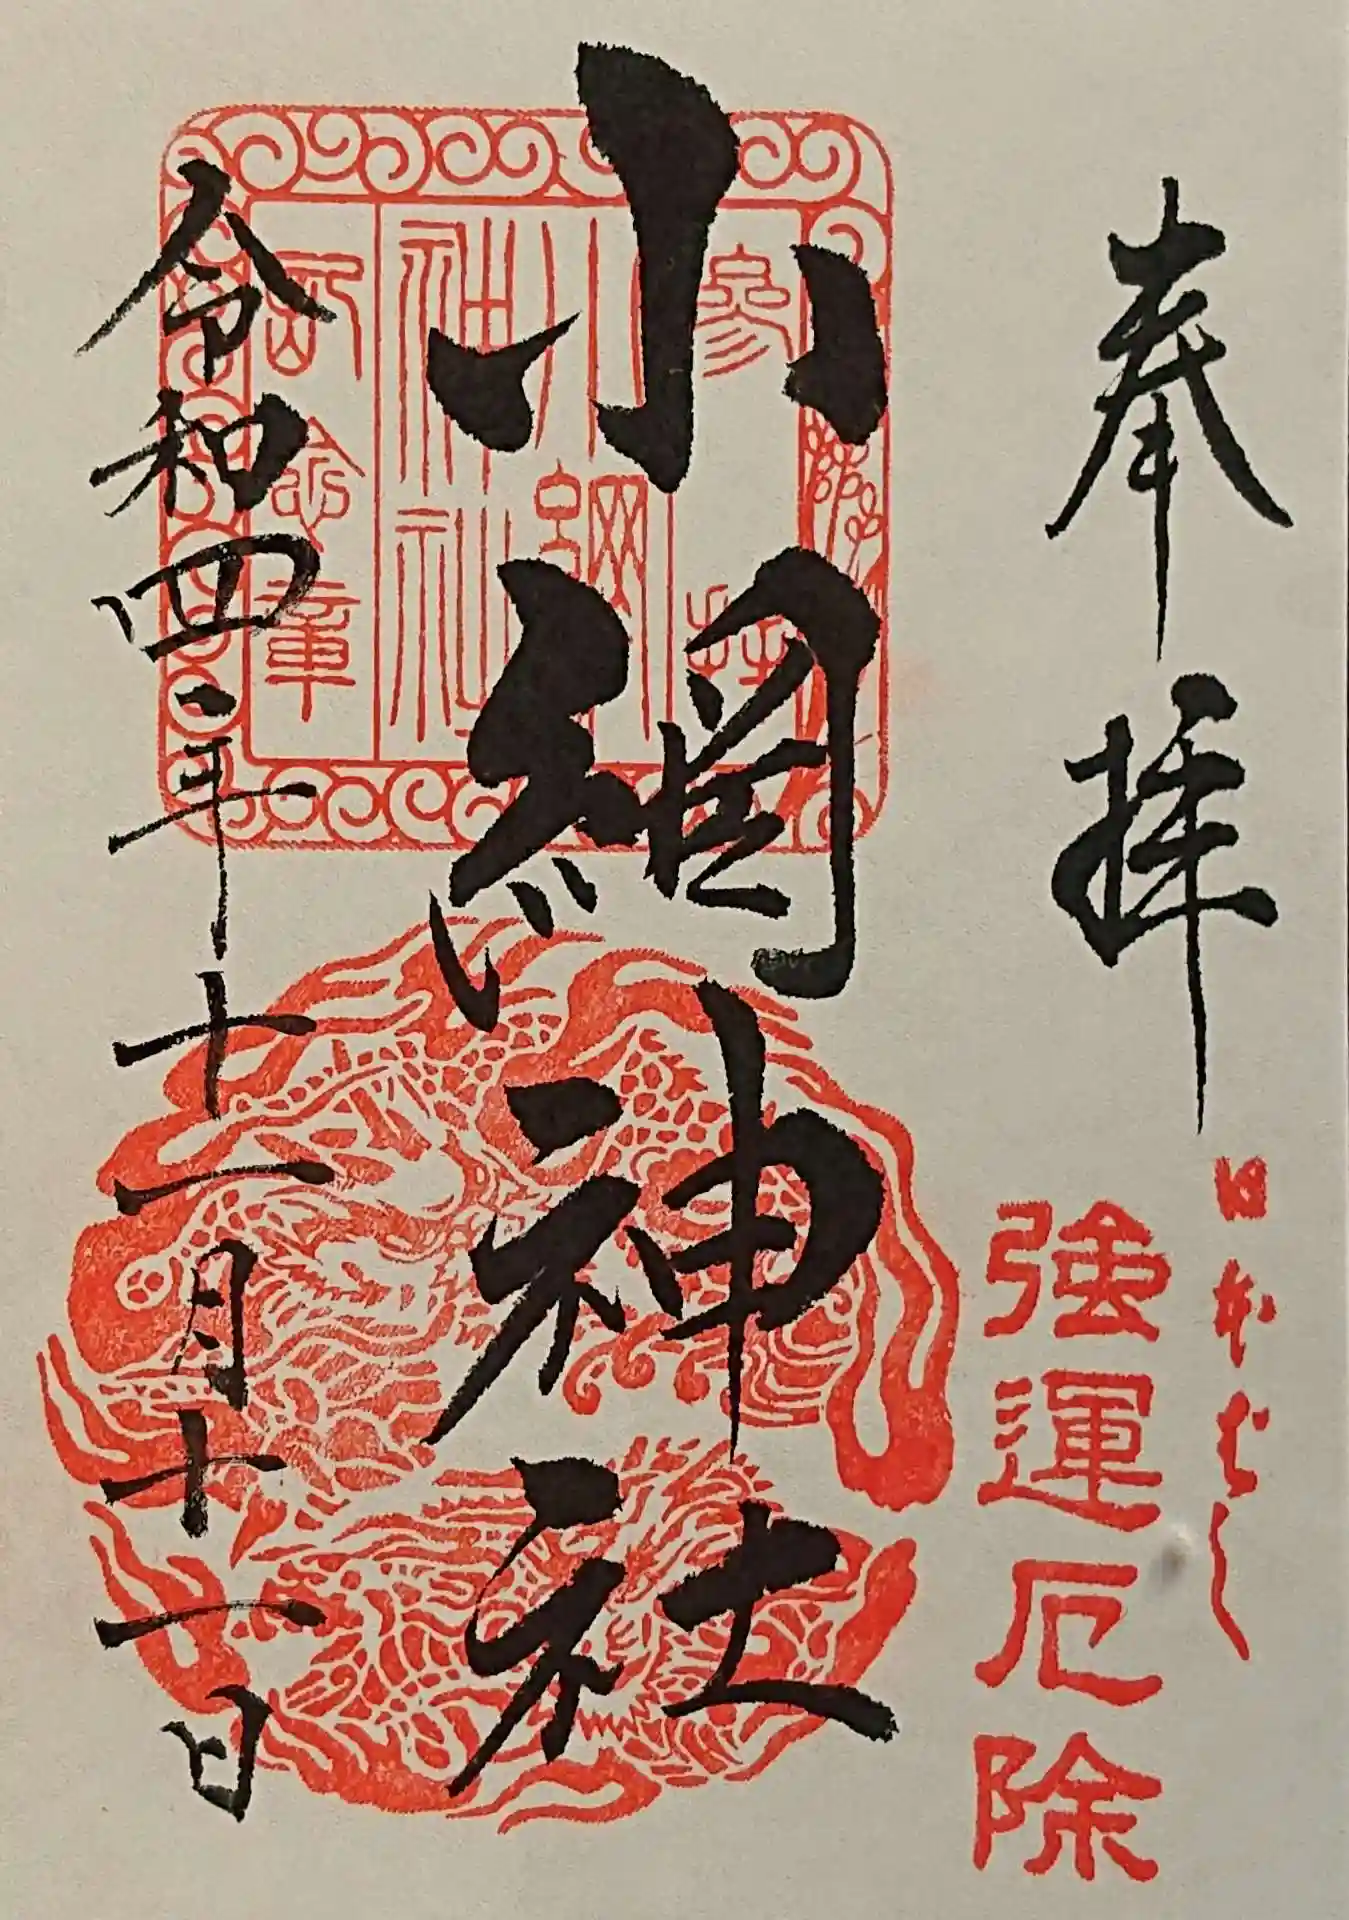 奉拝
日本ばし
強運厄除
小網神社
参拝
小網
神社
記念章
令和四年十一月十一日